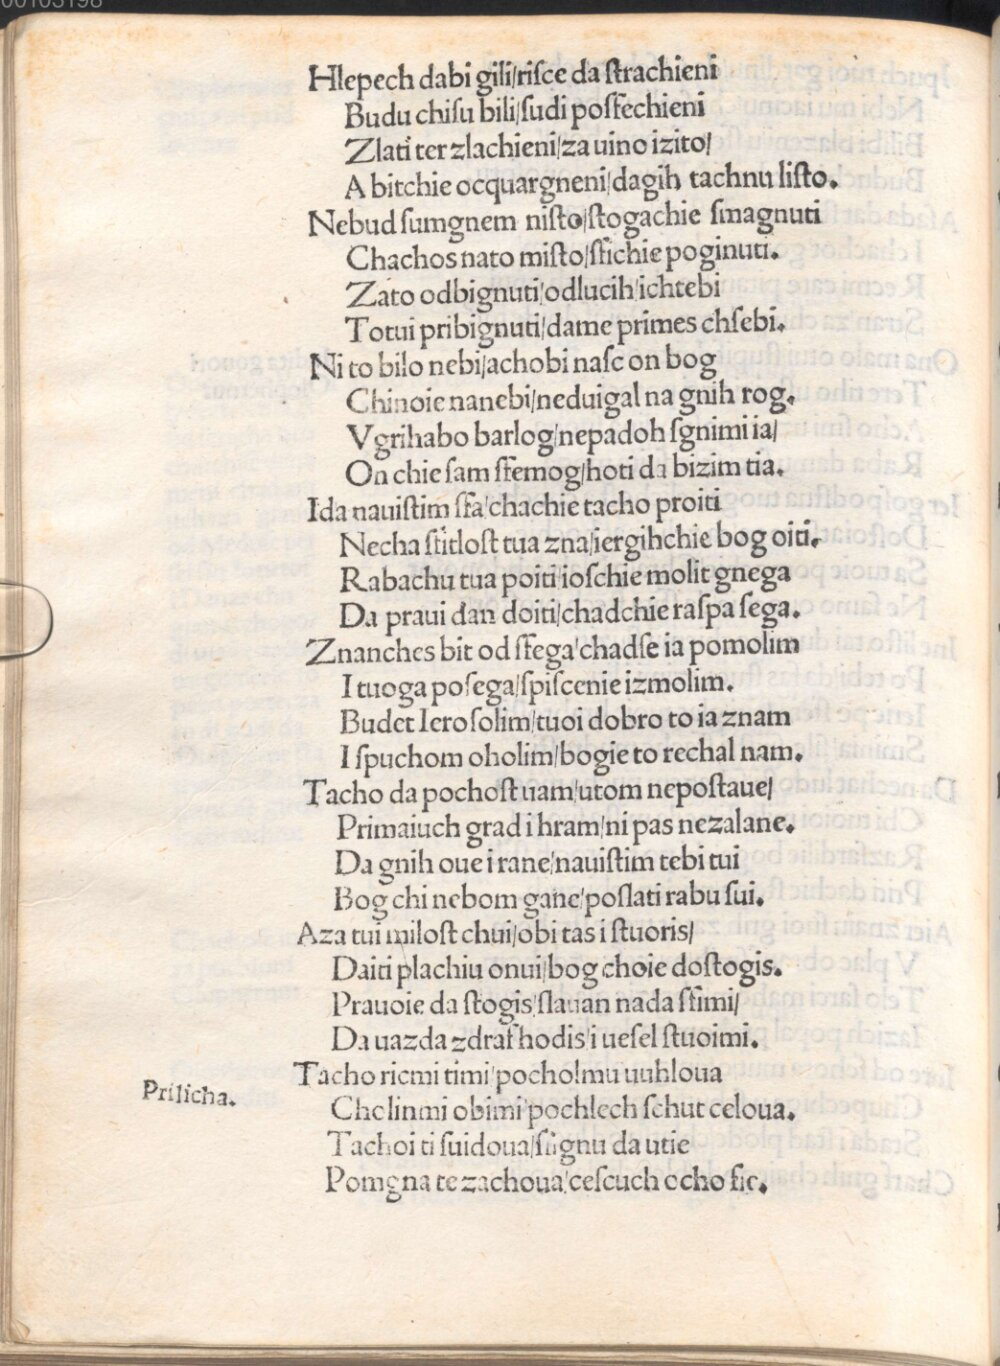 00103198
Hlepech dabi gili/risce da strachieni
Budu chisu bili/sudi posfechieni
Zlati ter zlachieni/za uino izito/
A bitchie ocquargneni/dagih tachnu listo.
Nebud sumgnem nisto/stogachie smagnuti
Chachos nato misto/sfichie poginuti.
Zato odbignuti/odlucih/ichtebi
Totui pribignuti/dame primes chsebi.
Ni to bilo nebi/achobi nasc on bog
Chinoie nanebi/neduigal na gnih rog.
Vgrihabo barlog/nepadoh sgnimi ia/
On chie sam sfemog/hoti da bizim tia.
Ida nauistim sfa/chachie tacho proiti
Necha stitlost tua zna/iergihchie bog oiti.
Rabachu tua poiti ioschie molit gnega
Da praui dan doiti/chadchie raspa sega.
Znanches bit od sfega/chadse ia pomolim
I tuoga posega/spiscenie izmolim.
Budet Ierosolim/tuoi dobro to ia znam
I spuchom oholim/bogie to rechal nam.
Tacho da pochost uam/utom nepostaue/
Primaiuch grad i hram/ni pas nezalane.
Da gnih oue i rane/nauistim tebi tui
Bog chi nebom gane/poslati rabu sui.
Aza tui milost chui/obi tas i stuoris/
Daiti plachiu onui/bog choie dostogis.
Prauoie da stogis/slauan nada sfimi/
Da uazda zdraf hodis/i uesel stuoimi.
Tacho ricmi timi/pocholmu uuhloua
Prilicha.
Cholinmi obimi/pochlech schut celoua.
Tachoi ti suidoua/siignu da utie
Pomgna te zachoua/cescuch ocho sie.